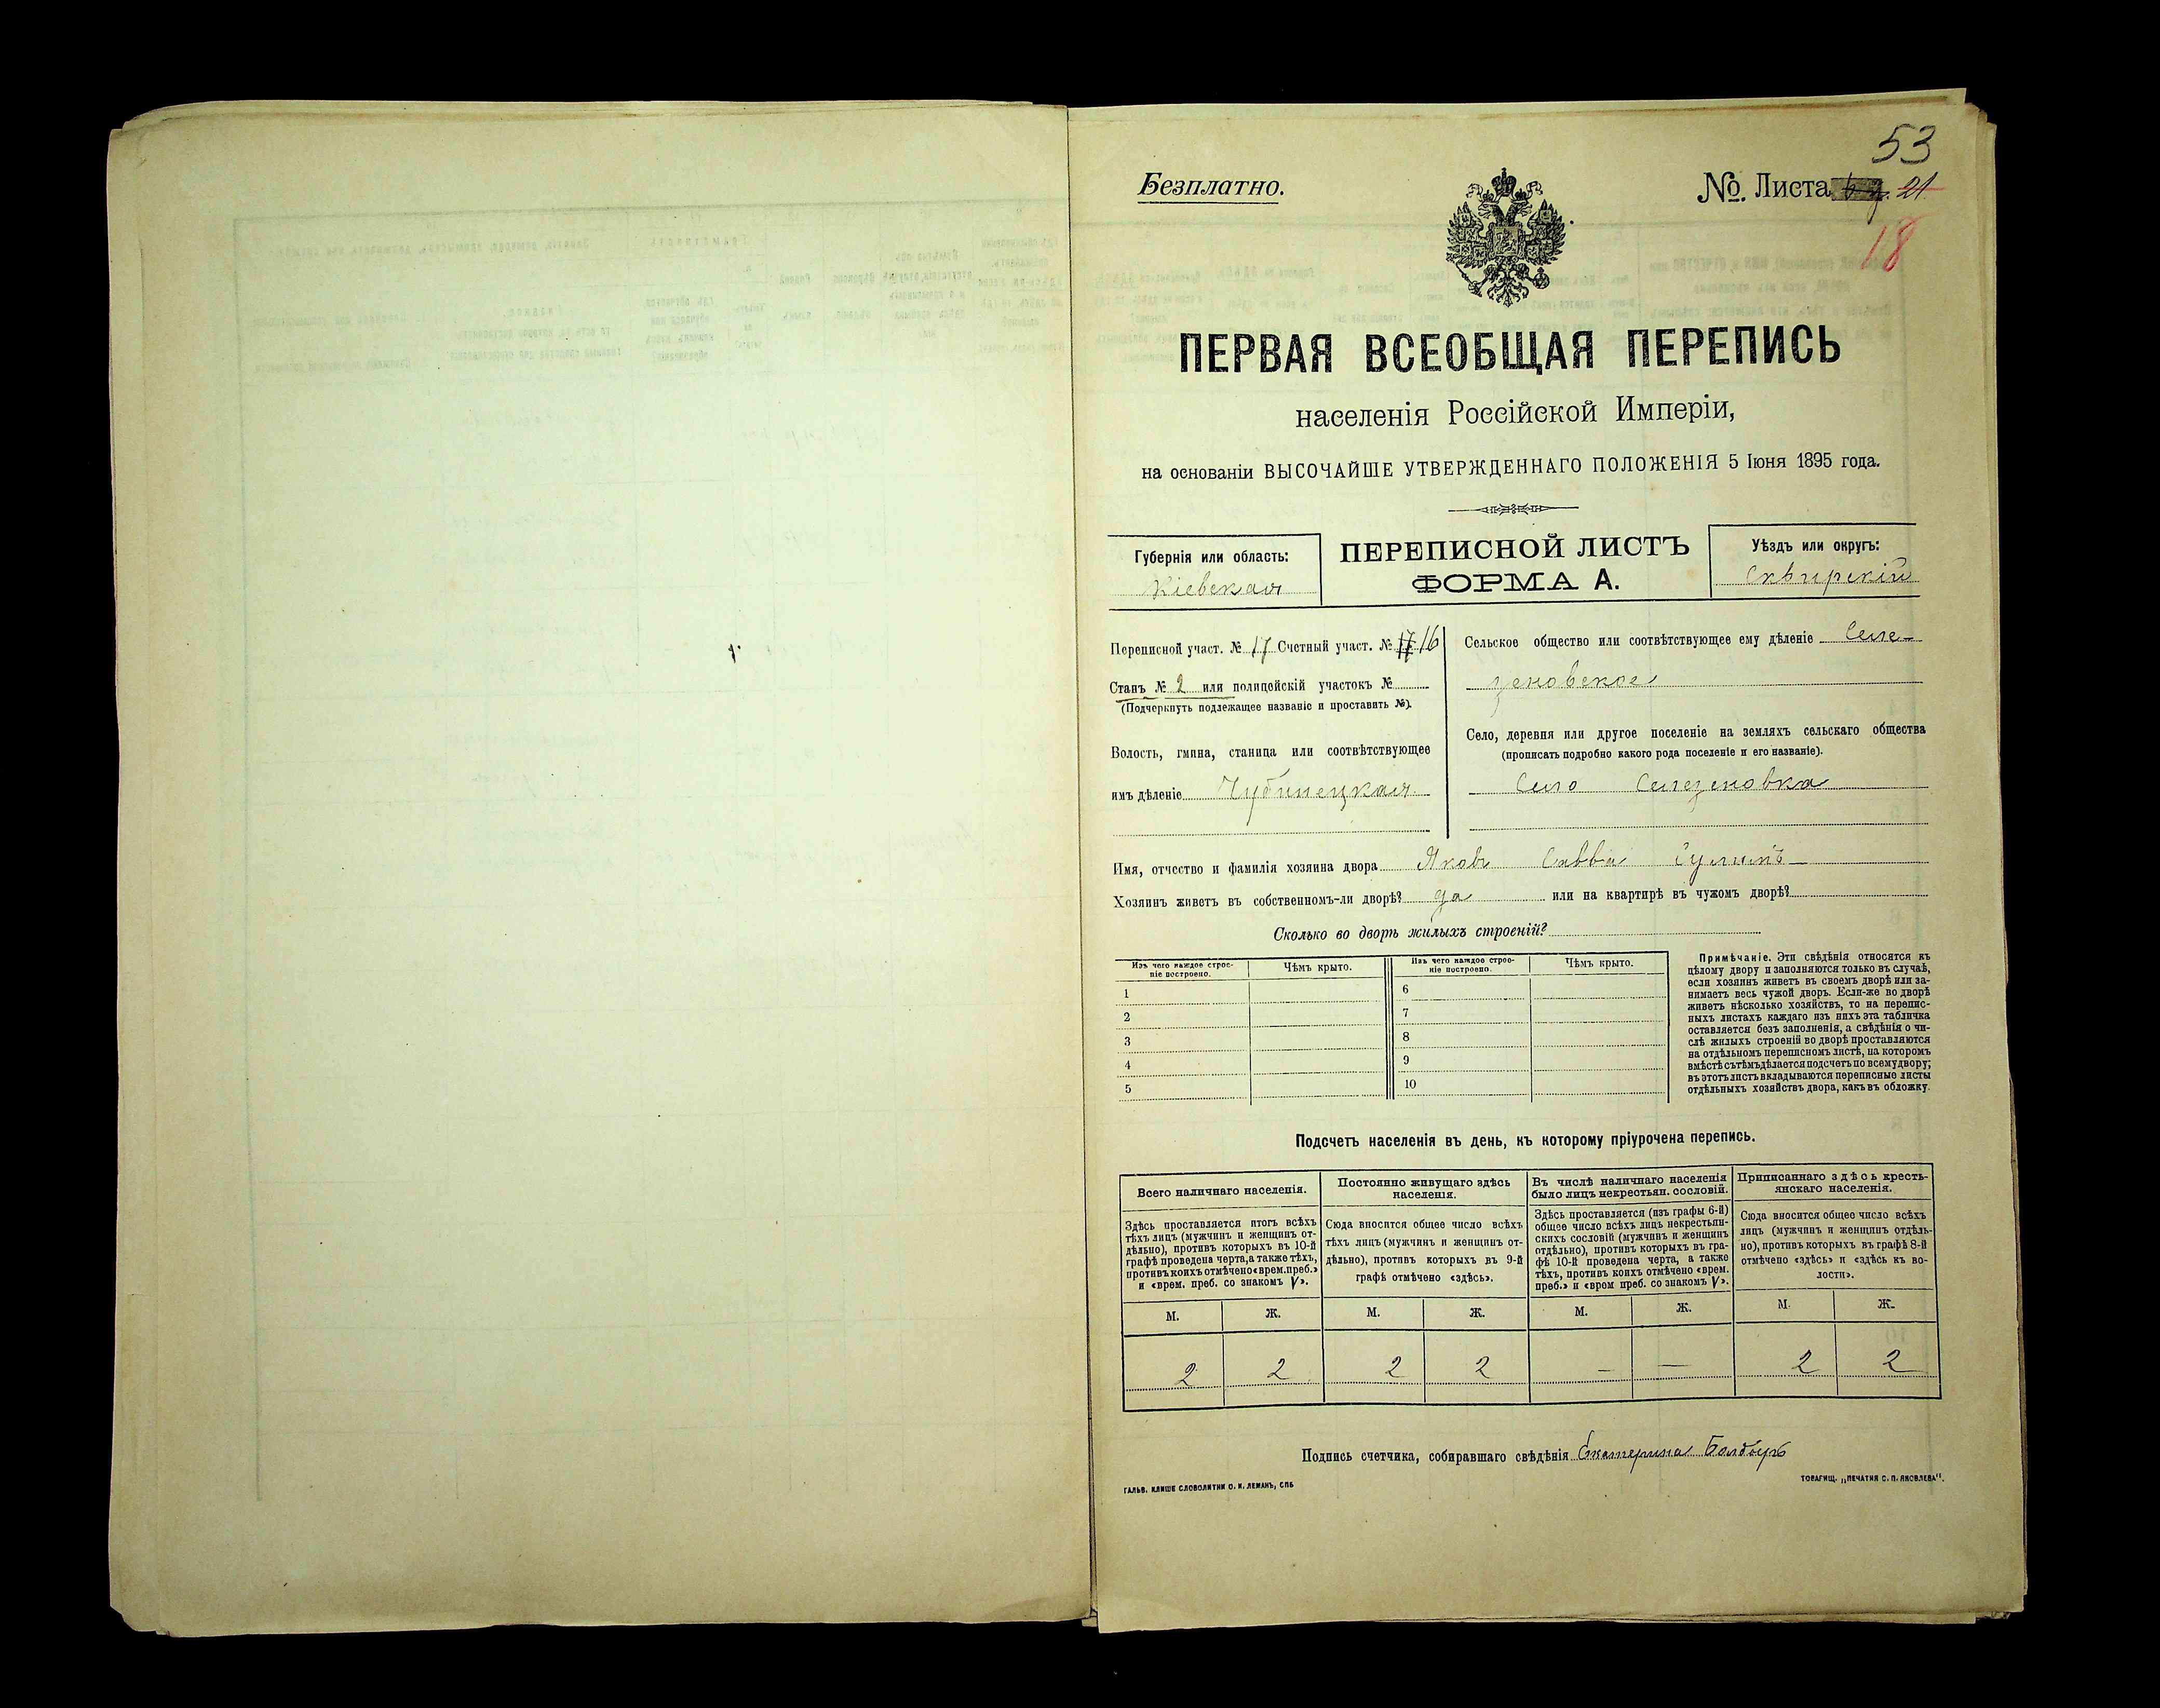 53
Безплатно.
№ Листа 21
18
ПЕРВАЯ ВСЕОБЩАЯ ПЕРЕПИСЬ
населенія Россійской Имперіи,
на основаніи ВЫСОЧАЙШЕ УТВЕРЖДЕННАГО ПОЛОЖЕНІЯ 5 Іюня 1895 года.
Губернія или область:
Кіевская
ПЕРЕПИСНОЙ ЛИСТЪ
ФОРМА А.
Уѣздъ или округъ:
Сквирскій
Переписной участ. № 17 Счетный участ. № 17 16
Станъ № 2 или полицейскій участокъ №
(Подчеркнуть подлежащее названіе и проставить №).
Волость, гмина, станица или соотвѣтствующее
имъ дѣленіе Чубинецкая
Сельское общество или соотвѣтствующее ему дѣленіе Селе-
зеновское
Село, деревня или другое поселеніе на земляхъ сельскаго общества
(прописать подробно какого рода поселеніе и его названіе).
Село Селезеновка
Имя, отчество и фамилія хозяина двора Яковъ Савва
Хозяинъ живетъ въ собственномъ-ли дворѣ? да или на квартирѣ въ чужомъ дворѣ?
Сколько во дворѣ жилыхъ строеній?
Изъ чего каждое строе-
ніе построено.
Чѣмъ крыто.
Изъ чего каждое строе-
ніе построено.
Чѣмъ крыто.
1
2
3
4
5
6
7
8
9
10
Примѣчаніе. Эти свѣдѣнія относятся къ
цѣлому двору и заполняются только въ случаѣ,
если хозяинъ живетъ въ своемъ дворѣ или за-
нимаетъ весь чужой дворъ. Если-же во дворѣ
живетъ нѣсколько хозяйствъ, то на перепис-
ныхъ листахъ каждаго изъ нихъ эта табличка
оставляется безъ заполненія, а свѣдѣнія о чи-
слѣ жилыхъ строеній во дворѣ проставляются
на отдѣльномъ переписномъ листѣ, на которомъ
вмѣстѣ съ тѣмъ дѣлается подсчетъ по всему двору;
въ этотъ листъ вкладываются переписные листы
отдѣльныхъ хозяйствъ двора, какъ въ обложку.
Подсчетъ населенія въ день, къ которому пріурочена перепись.
Всего наличнаго населенія.
Здѣсь проставляется итогъ всѣхъ
тѣхъ лицъ (мужчинъ и женщинъ от-
дѣльно), противъ которыхъ въ 10-й
графѣ проведена черта, а также тѣхъ,
противъ коихъ отмѣчено «врем. преб.»
и «врем. преб. со знакомъ V».
Постоянно живущаго здѣсь
населенія.
Сюда вносится общее число всѣхъ
тѣхъ лицъ (мужчинъ и женщинъ от-
дѣльно), противъ которыхъ въ 9-й
графѣ отмѣчено «здѣсь».
Въ числѣ наличнаго населенія
было лицъ некрестьян. сословій.
Здѣсь проставляется (изъ графы 6-й)
общее число всѣхъ лицъ некрестьян-
скихъ сословій (мужчинъ и женщинъ
отдѣльно), противъ которыхъ въ гра-
фѣ 10-й проведена черта, а также
тѣхъ, противъ коихъ отмѣчено «врем.
преб.» и «врем преб. со знакомъ V».
Приписаннаго здѣсь кресть-
янскаго населенія.
Сюда вносится общее число всѣхъ
лицъ (мужчинъ и женщинъ отдѣль-
но), противъ которыхъ въ графѣ 8-й
отмѣчено «здѣсь» и «здѣсь къ во-
лости».
М. Ж. М. Ж. М. Ж. М. Ж.
2 2 2 2 — — 2 2
Подпись счетчика, собиравшаго свѣдѣнія Екатерина
ГАЛЬВ. КЛИШЕ СЛОВОЛИТНИ О. И. ЛЕМАНЪ, СПБ
ТОВАРИЩ. „ПЕЧАТНЯ С. П. ЯКОВЛЕВА“.